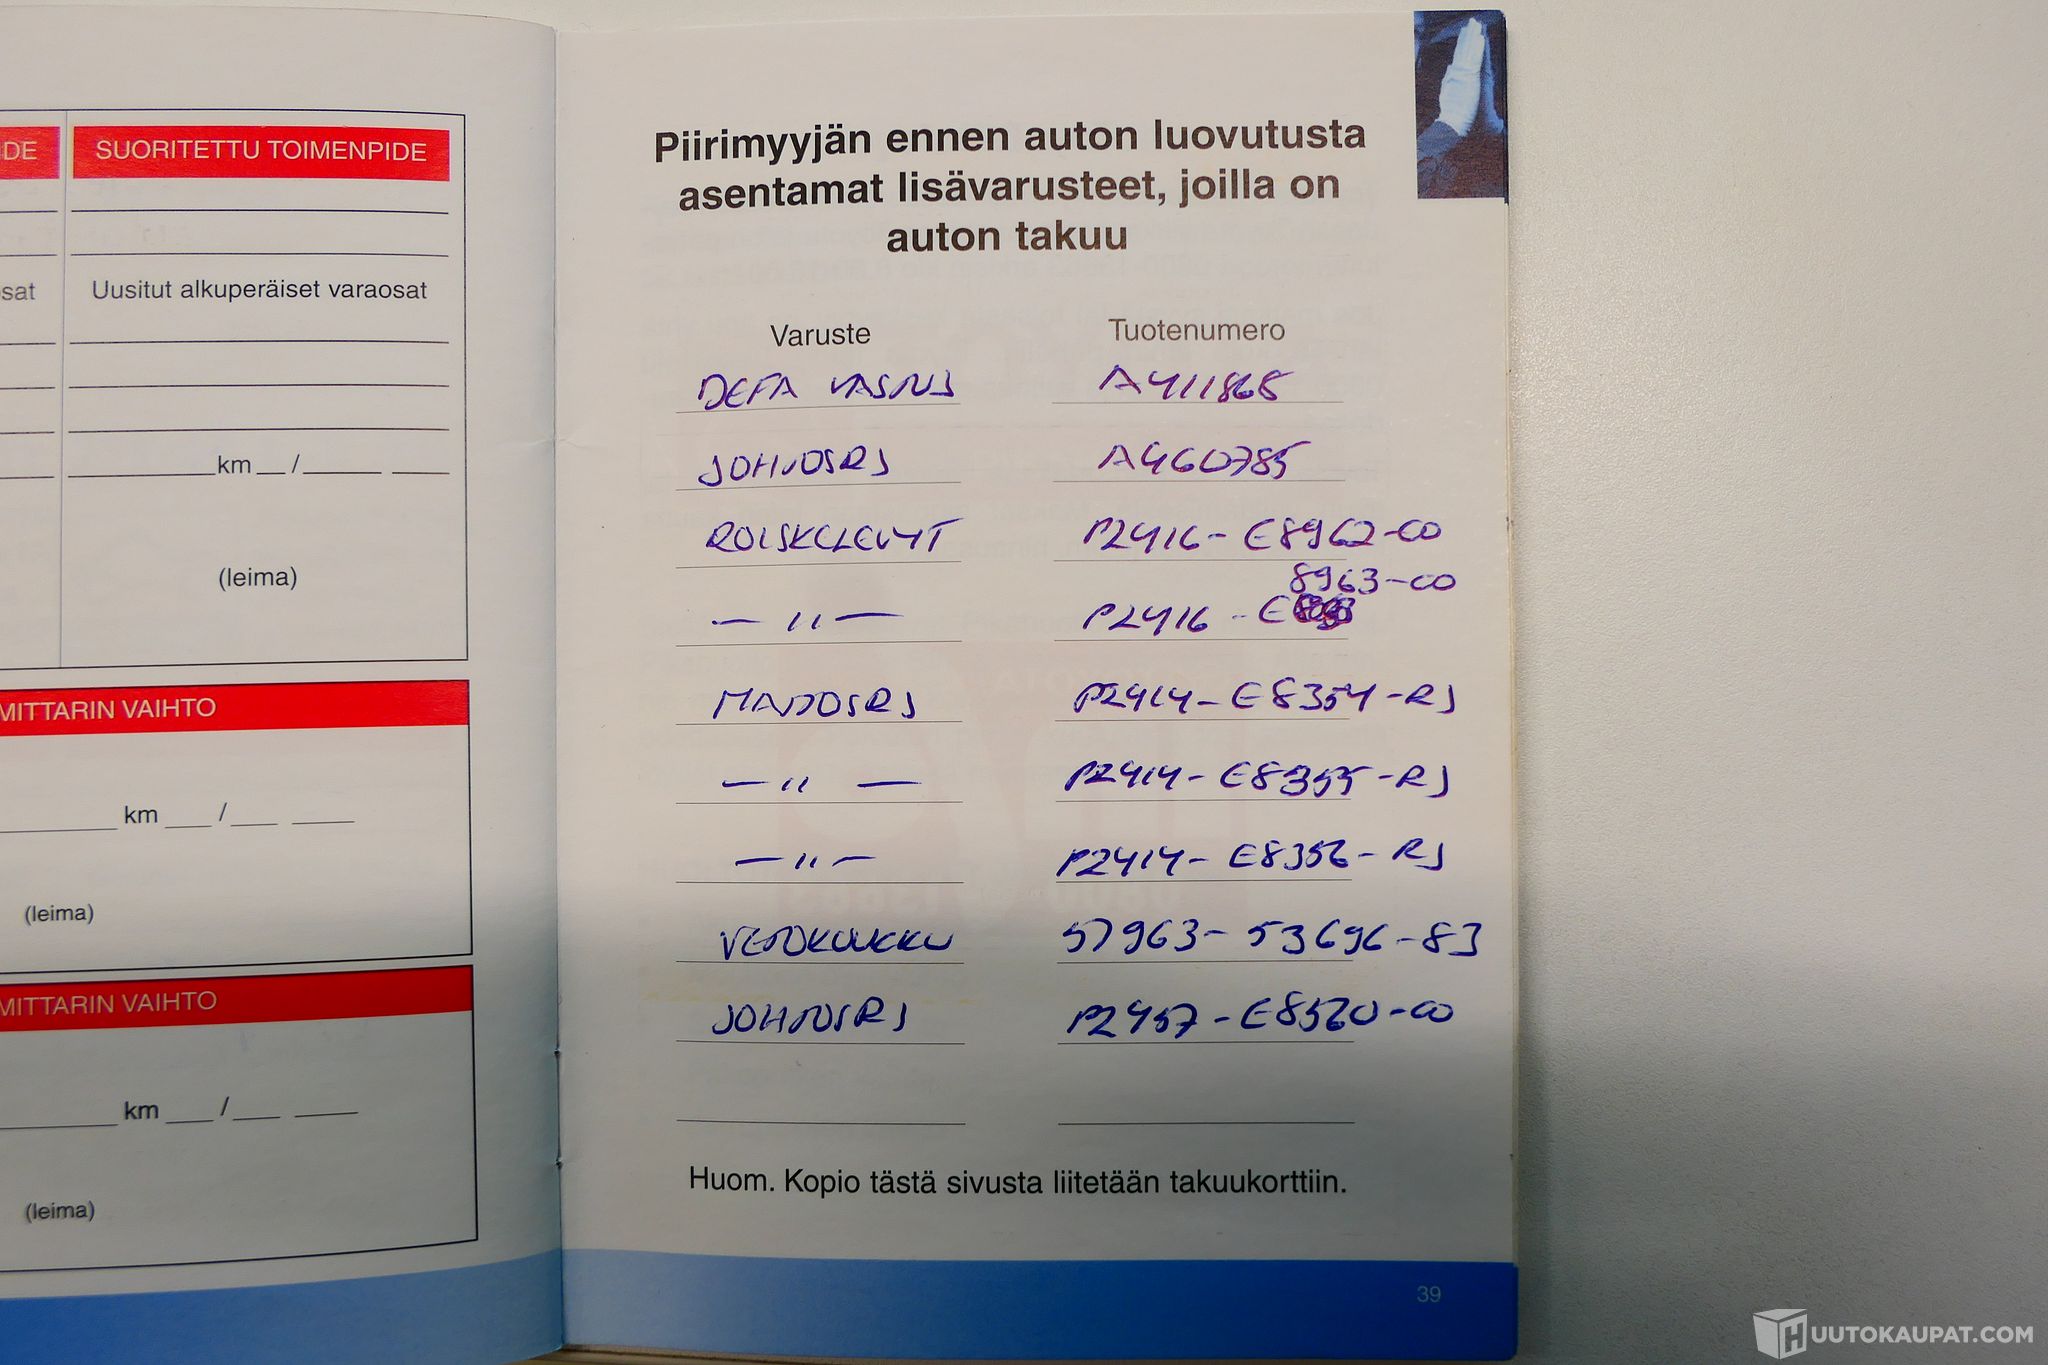 IDE
SUORITETTU TOIMENPIDE
osat
Uusitut alkuperäiset varaosat
km / 
(leima)
MITTARIN VAIHTO
km /
(leima)
MITTARIN VAIHTO
km /
(leima)
Piirimyyjän ennen auton luovutusta
asentamat lisävarusteet, joilla on
auton takuu
Varuste Tuotenumero
DEFA A411868
JOHTOSRJ A460785
ROISKELEVYT PZ416-E8962-CO
8963-CO
— " — PZ416-E
MATTOSRJ PZ414-E8354-RJ
— " — PZ414-E8355-RJ
— " — PZ414-E8356-RJ
VETOKOUKKU 57963-53696-83
JOHTOSRJ PZ457-E8520-CO
Huom. Kopio tästä sivusta liitetään takuukorttiin.
39
HUUTOKAUPAT.COM